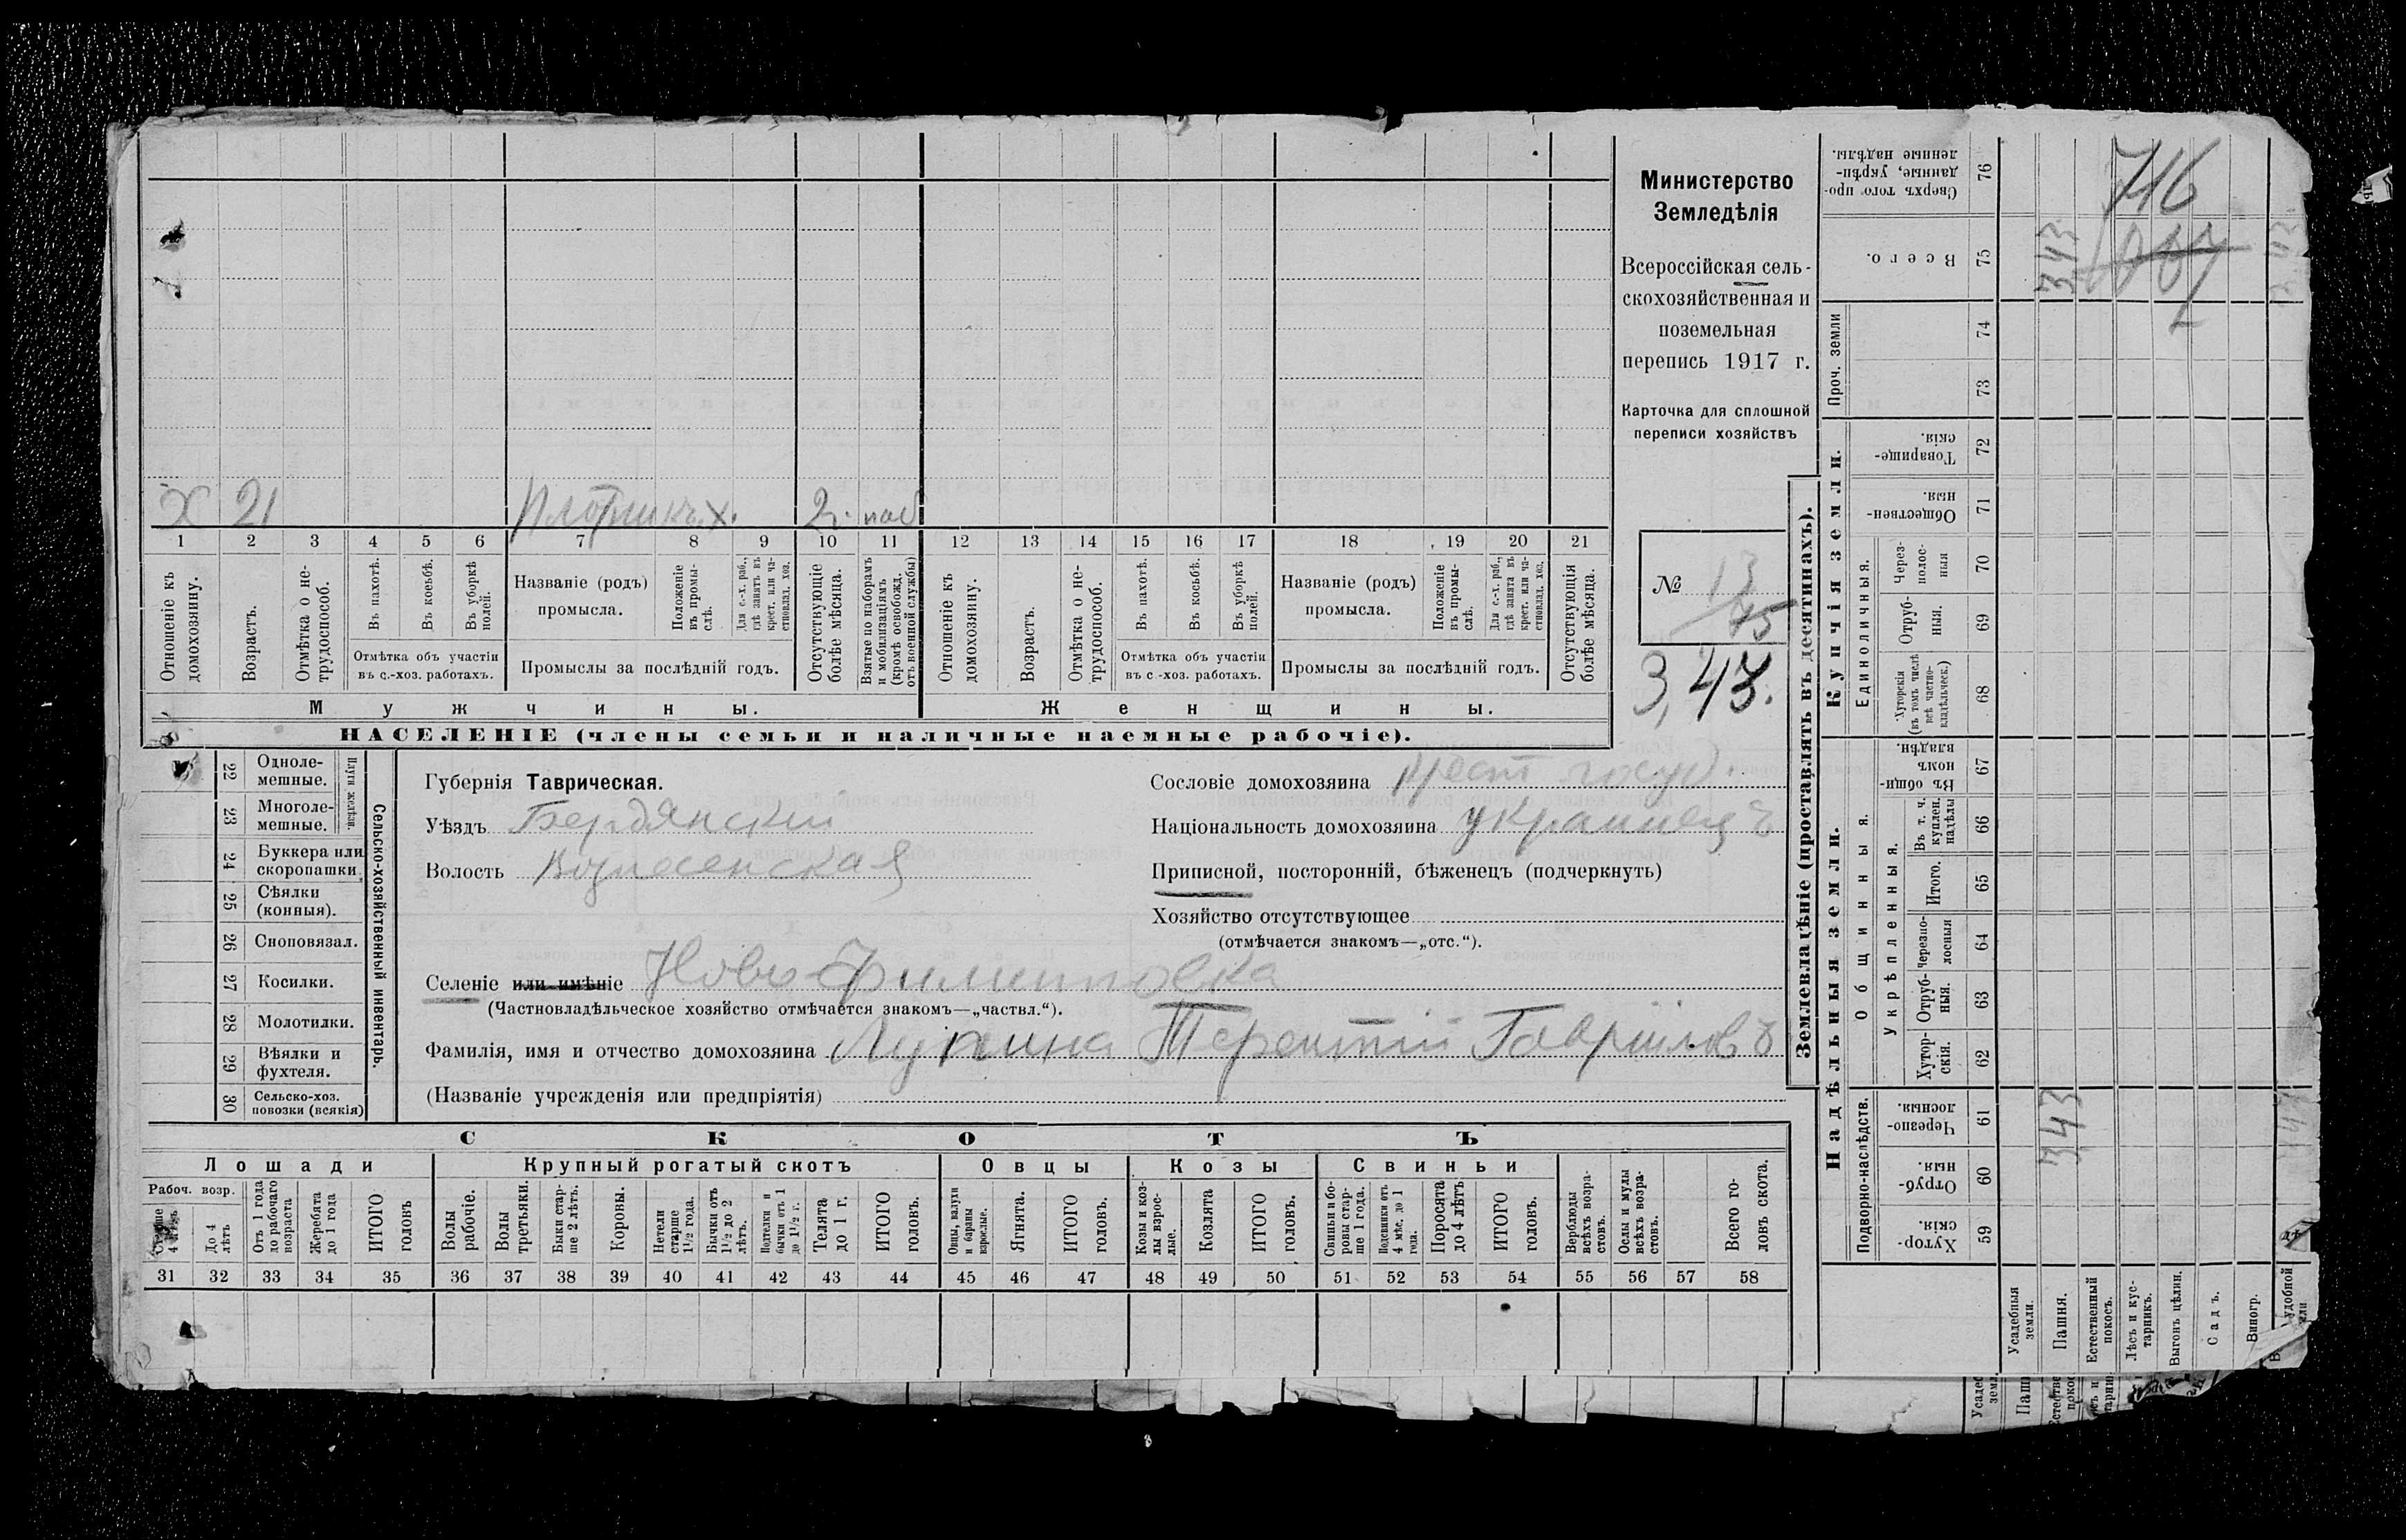 Министерство
Земледѣлія
Всероссійская сель-
скохозяйственная и
поземельная
перепись 1917 г.
Карточка для сплошной
переписи хозяйствъ
№ 13
75
3,43.
Х 21 Плотникъ х. 2 г. наб
1 2 3 4 5 6 7 8 9 10 11 12 13 14 15 16 17 18 19 20 21
Отношеніе къ домохозяину.
Возрастъ.
Отмѣтка о не-трудоспособ.
Въ пахотѣ.
Въ косьбѣ.
Въ уборкѣ полей.
Отмѣтка объ участіи въ с.-хоз. работахъ.
Названіе (родъ) промысла.
Положеніе въ промы-слѣ.
Для с.-х. раб., гдѣ занятъ въ крест. или ча-стновлад. хоз.
Промыслы за послѣдній годъ.
Отсутствующіе болѣе мѣсяца.
Взятые по наборамъ и мобилизаціямъ (кромѣ освобожд. отъ военной службы)
Отношеніе къ домохозяину.
Возрастъ.
Отмѣтка о не-трудоспособ.
Въ пахотѣ.
Въ косьбѣ.
Въ уборкѣ полей.
Отмѣтка объ участіи въ с.-хоз. работахъ.
Названіе (родъ) промысла.
Положеніе въ промы-слѣ.
Для с.-х. раб., гдѣ занята въ крест. или ча-стновлад. хоз.
Промыслы за послѣдній годъ.
Отсутствующія болѣе мѣсяца.
Мужчины. Женщины.
НАСЕЛЕНІЕ (члены семьи и наличные наемные рабочіе).
22 Одноле-мешные.
23 Многоле-мешные.
Плуги желѣзн.
24 Буккера или скоропашки.
25 Сѣялки (конныя).
26 Сноповязал.
27 Косилки.
28 Молотилки.
29 Вѣялки и фухтеля.
30 Сельско-хоз. повозки (всякія)
Сельско-хозяйственный инвентарь.
Губернія Таврическая.
Уѣздъ Бердянскій
Волость Вознесенская
Селеніе или имѣніе Ново Филипповка
(Частновладѣльческое хозяйство отмѣчается знакомъ—„частвл.“).
Фамилія, имя и отчество домохозяина Лупина Терентій Гавріиловъ
(Названіе учрежденія или предпріятія)
Сословіе домохозяина крест госуд.
Національность домохозяина украинецъ
Приписной, посторонній, бѣженецъ (подчеркнуть)
Хозяйство отсутствующее
(отмѣчается знакомъ—„отс.“).
СКОТЪ
Лошади Крупный рогатый скотъ Овцы Козы Свиньи
Рабоч. возр.
Старше 4 лѣтъ
До 4 лѣтъ
Отъ 1 года до рабочаго возраста
Жеребята до 1 года
ИТОГО головъ
Волы рабочіе.
Волы третьяки.
Быки стар-ше 2 лѣтъ.
Коровы.
Нетели старше 1½ года.
Бычки отъ 1½ до 2 лѣтъ.
Подтелки и бычки отъ 1 до 1½ г.
Телята до 1 г.
ИТОГО головъ.
Овцы, валухи и бараны взрослые.
Ягнята.
ИТОГО головъ.
Козы и коз-лы взрос-лые.
Козлята
ИТОГО головъ.
Свиньи и бо-ровы стар-ше 1 года.
Подсвинки отъ 4 мѣс. до 1 года.
Поросята до 4 лѣтъ
ИТОГО головъ.
Верблюды всѣхъ возра-стовъ.
Ослы и мулы всѣхъ возра-стовъ.
Всего го-ловъ скота.
31 32 33 34 35 36 37 38 39 40 41 42 43 44 45 46 47 48 49 50 51 52 53 54 55 56 57 58
Землевладѣніе (проставлять въ десятинахъ).
Надѣльныя земли. Купчія земли. Проч. земли
Подворно-наслѣдств.
Общинныя.
Укрѣпленныя.
Единоличныя.
Сверхъ того про-данные, укрѣп-ленные надѣлы. 76
Всего. 75
74
73
Товарище-скія. 72
Обществен-ныя. 71
Через-полос-ныя 70
Отруб-ныя. 69
Хуторскія (въ томъ числѣ всѣ частно-владѣльческ.) 68
Въ общи-номъ владѣн. 67
Въ т. ч. куплен. надѣлы 66
Итого. 65
Черезпо-лосныя 64
Отруб-ныя. 63
Хутор-скія. 62
Черезпо-лосныя. 61
Отруб-ныя. 60
Хутор-скія. 59
716
343
3,43
3,43
Усадебныя земли.
Пашня.
Естественный покосъ.
Лѣсъ и кус-тарникъ.
Выгонъ цѣлин.
Садъ.
Виногр.
удобной